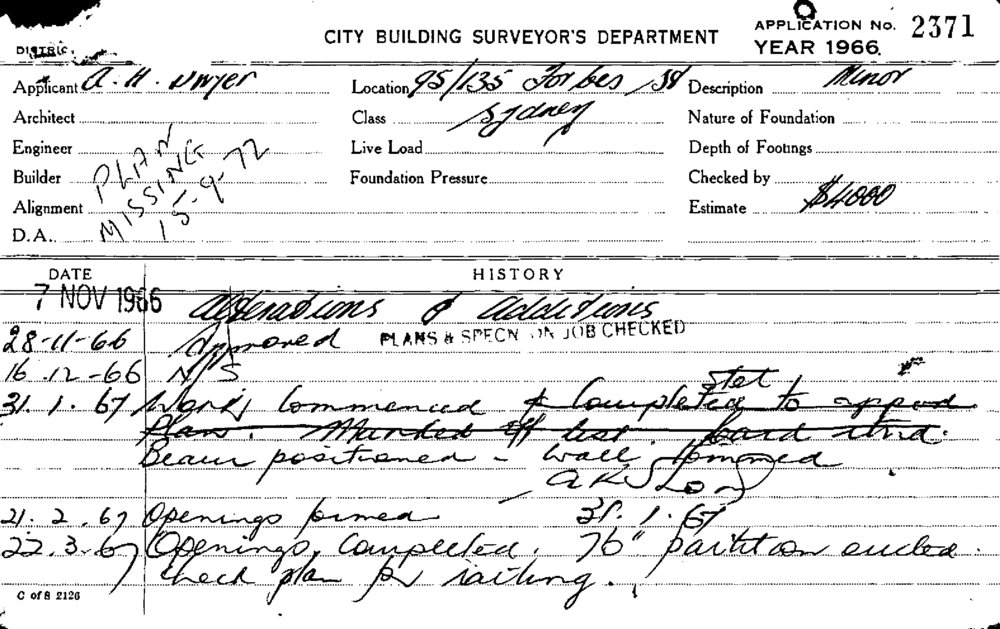 CITY BUILDING SURVEYOR'S DEPARTMENT
APPLICATION No. 2371
YEAR 1966.
DISTRIC
Applicant A. H. Dwyer Location 95/135 Forbes St Description Minor
Architect Class Sydney Nature of Foundation
Engineer Live Load Depth of Footings
Builder Foundation Pressure Checked by
Alignment Estimate $4000
D.A.
PLAN
MISSING
15-9-72
DATE HISTORY
7 NOV 1966 Alterations & additions
28-11-66 Approved PLANS & SPECN ON JOB CHECKED
16.12-66 N/S
stet
31.1.67 Work commenced & Completed to
Plan. Marked off list. Card
Beam positioned - Wall
31.1.67
21.2.67 Openings formed
22.3.67 Openings, Completed. 76" partition
Check plan for railing.
C of S 2126